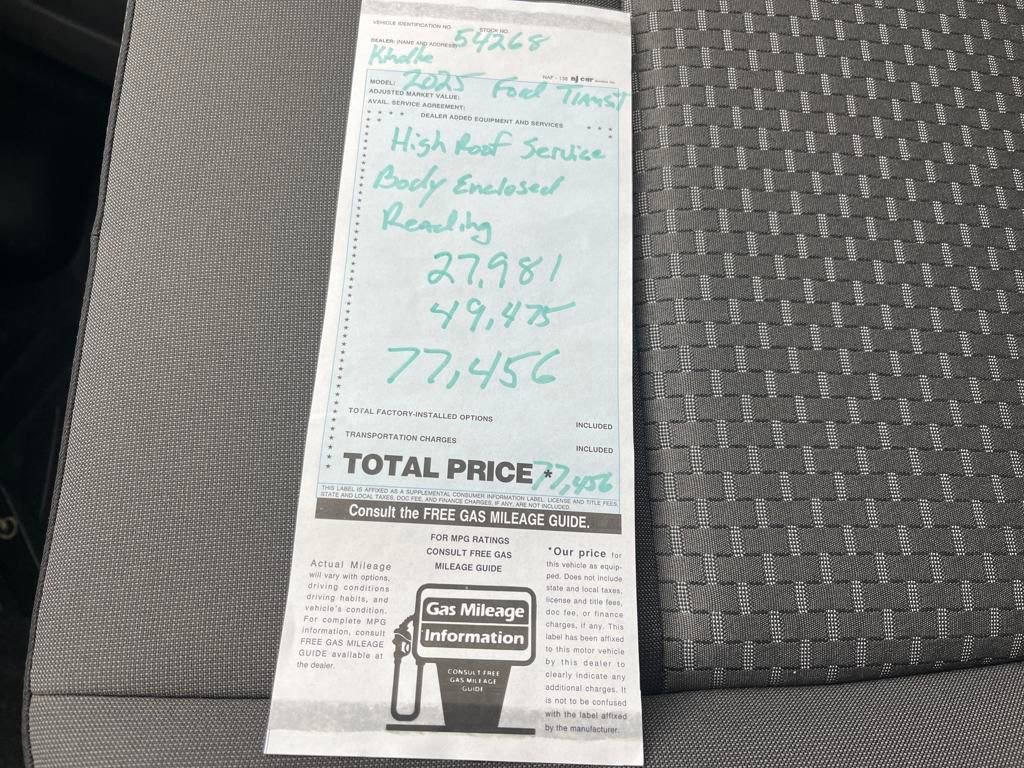 VEHICLE IDENTIFICATION NO.
STOCK NO.
54268
DEALER: (NAME AND ADDRESS)
NAF - 138 nj car
MODEL: 2025 Ford Transit
ADJUSTED MARKET VALUE:
AVAIL. SERVICE AGREEMENT:
* * * * DEALER ADDED EQUIPMENT AND SERVICES * * *
High Roof Service
Body Enclosed
Reading
27,981
49,475
77,456
TOTAL FACTORY-INSTALLED OPTIONS
INCLUDED
TRANSPORTATION CHARGES
INCLUDED
TOTAL PRICE * 77,456
THIS LABEL IS AFFIXED AS A SUPPLEMENTAL CONSUMER INFORMATION LABEL. LICENSE AND TITLE FEES,
STATE AND LOCAL TAXES, DOC FEE, AND FINANCE CHARGES, IF ANY, ARE NOT INCLUDED.
Consult the FREE GAS MILEAGE GUIDE.
Actual Mileage
will vary with options,
driving conditions
driving habits, and
vehicle's condition.
For complete MPG
information, consult
FREE GAS MILEAGE
GUIDE available at
the dealer.
FOR MPG RATINGS
CONSULT FREE GAS
MILEAGE GUIDE
Gas Mileage
Information
CONSULT FREE
GAS MILEAGE
GUIDE
*Our price for
this vehicle as equip-
ped. Does not include
state and local taxes,
license and title fees,
doc fee, or finance
charges, if any. This
label has been affixed
to this motor vehicle
by this dealer to
clearly indicate any
additional charges. It
is not to be confused
with the label affixed
by the manufacturer.